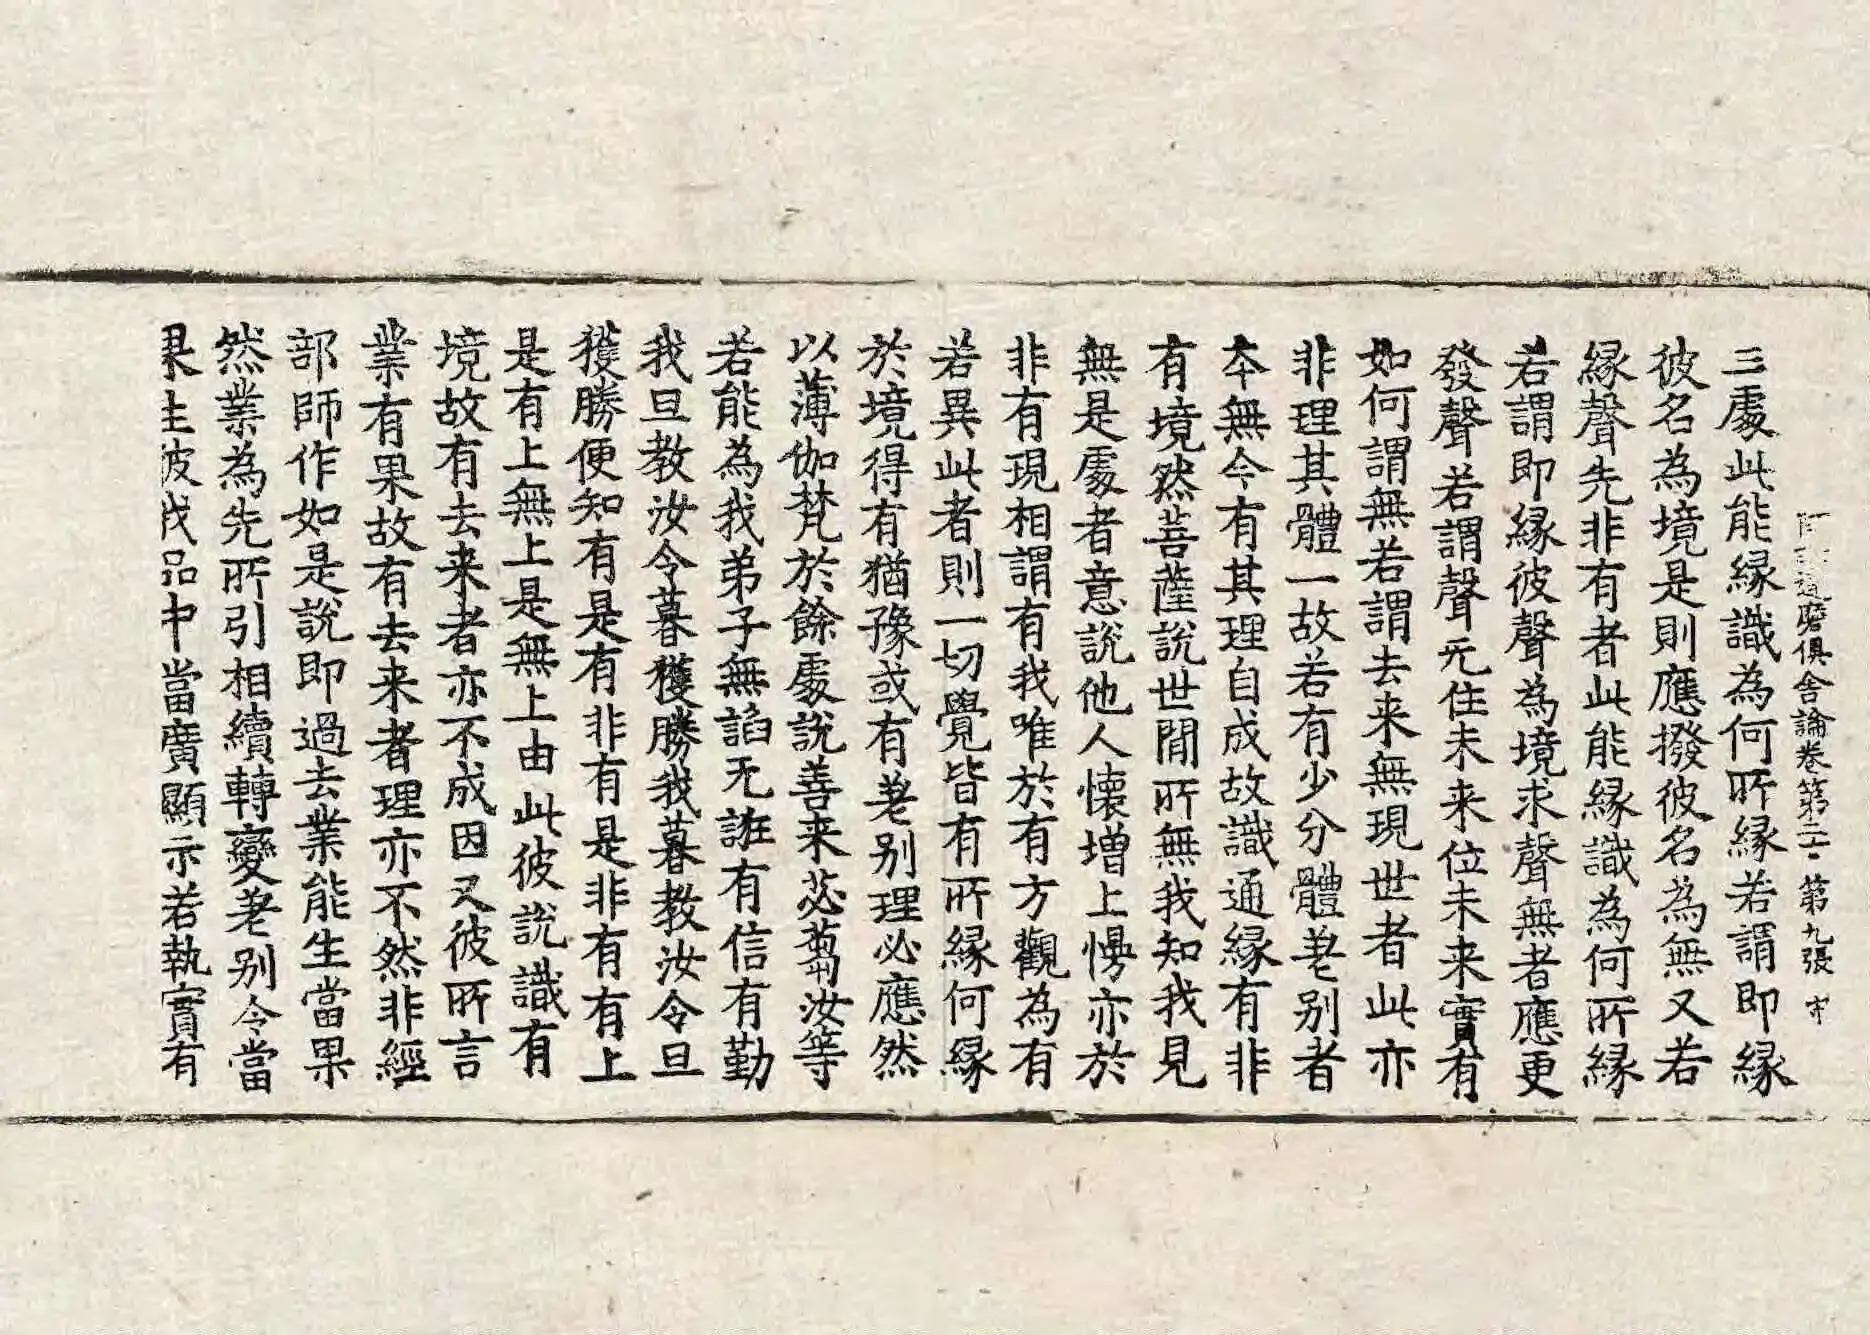 阿毗達磨俱舍論卷第二十 第九張 守
三處此能緣識為何所緣若謂即緣
彼名為境是則應撥彼名為無又若
緣聲先非有者此能緣識為何所緣
若謂即緣彼聲為境求聲無者應更
發聲若謂聲无住未来位未来實有
如何謂無若謂去来無現世者此亦
非理其體一故若有少分體差别者
本無今有其理自成故識通緣有非
有境然菩薩說世閒所無我知我見
無是處者意說他人懷增上慢亦於
非有現相謂有我唯於有方觀為有
若異此者則一切覺皆有所緣何緣
於境得有猶豫或有差别理必應然
以薄伽梵於餘處說善来苾蒭汝等
若能為我弟子無諂无誑有信有勤
我旦教汝令暮獲勝我暮教汝令旦
獲勝便知有是有非有是非有有上
是有上無上是無上由此彼說識有
境故有去来者亦不成因又彼所言
業有果故有去来者理亦不然非經
部師作如是說即過去業能生當果
然業為先所引相續轉變差别令當
果生彼我品中當廣顯示若執實有